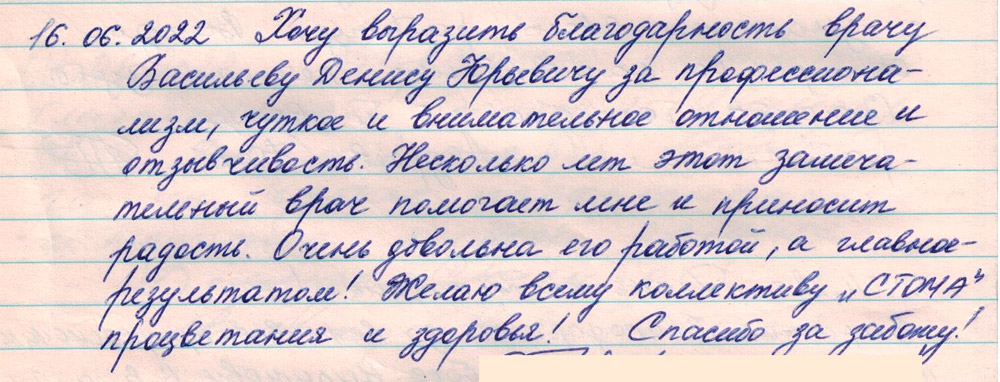 16.06.2022 Хочу выразить благодарность врачу
Васильеву Денису Юрьевичу за профессиона-
лизм, чуткое и внимательное отношение и
отзывчивость. Несколько лет этот замеча-
тельный врач помогает мне и приносит
радость. Очень довольна его работой, а главное-
результатом! Желаю всему коллективу „СТОМА"
процветания и здоровья! Спасибо за заботу!